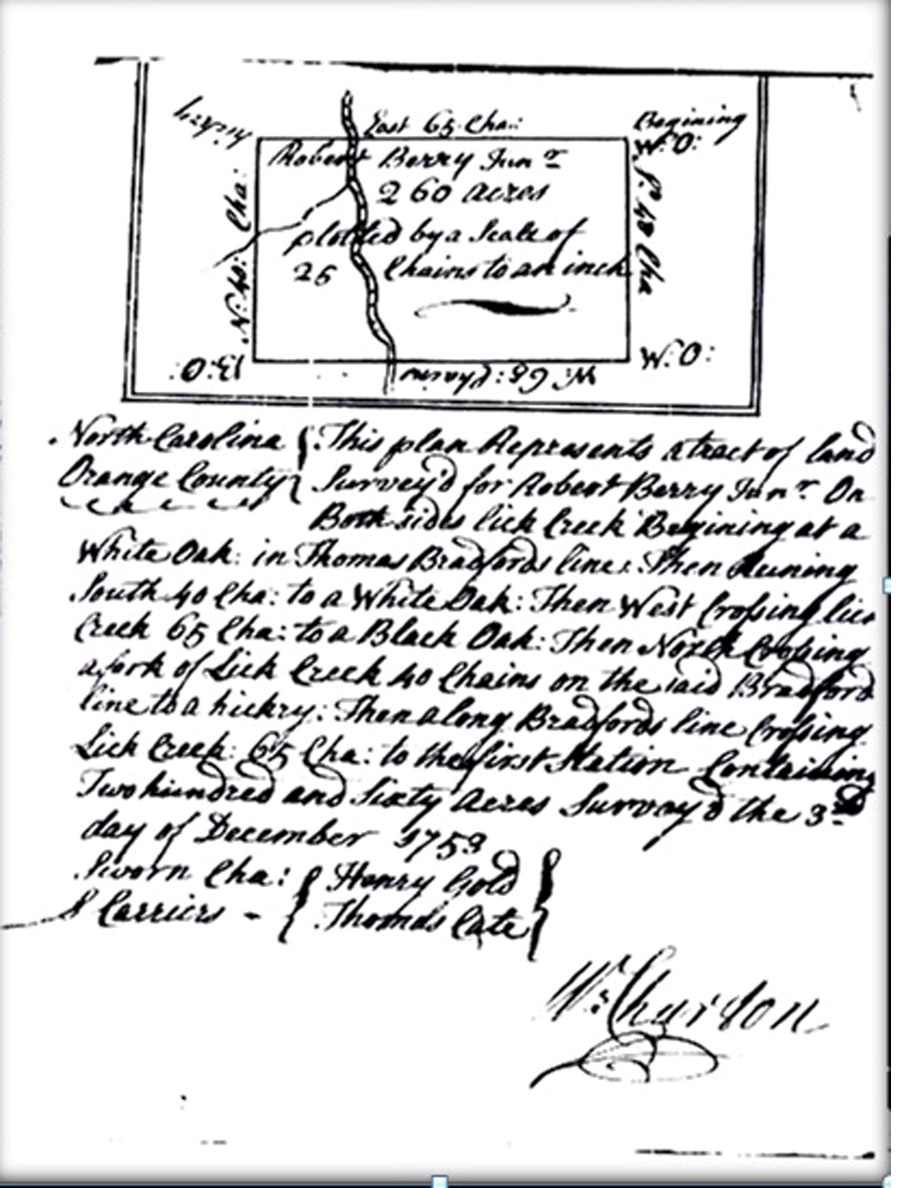 hickry
East 65 Cha:
Begining
W: O:
Robert Berry Junr
260 acres
plotted by a Scale of
25 Chains to an inch
N: 40: Cha:
S: 40 Cha
B: O:
W: 65: Chains
W: O:
North Carolina { This plan Represents a tract of land
Orange County { Survey'd for Robert Berry Junr. On
Both sides lick Creek Begining at a
White Oak: in Thomas Bradfords line: Then Runing
South 40 Cha: to a White Oak: Then West Crossing lick
Creek 65 Cha: to a Black Oak: Then North Crossing
a fork of Lick Creek 40 Chains on the said Bradford
line to a hickry: Then along Bradfords line Crossing
Lick Creek: 65 Cha: to the first Station Containing
Two hundred and Sixty Acres Survey'd the 3rd
day of December 1753
Sworn Cha: { Henry Gold }
Carriers - { Thomas Cate }
Wm Churton